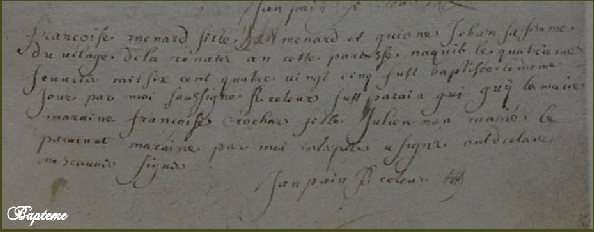 Jan pain
francoise menard fille Jan menard et guione Johan sa femme
du vilage de la en cette paroisse naquit le quatrieme
feuvrie mil six cent quatre vingt cinq fust baptisée le meme
Jour par moi soussigne Recteur fust parain guy
maraine francoise fille Julien non marié le
parain et maraine par moi a signe ont declare
ne scavoir signe
Jan pain Recteur
Bapteme